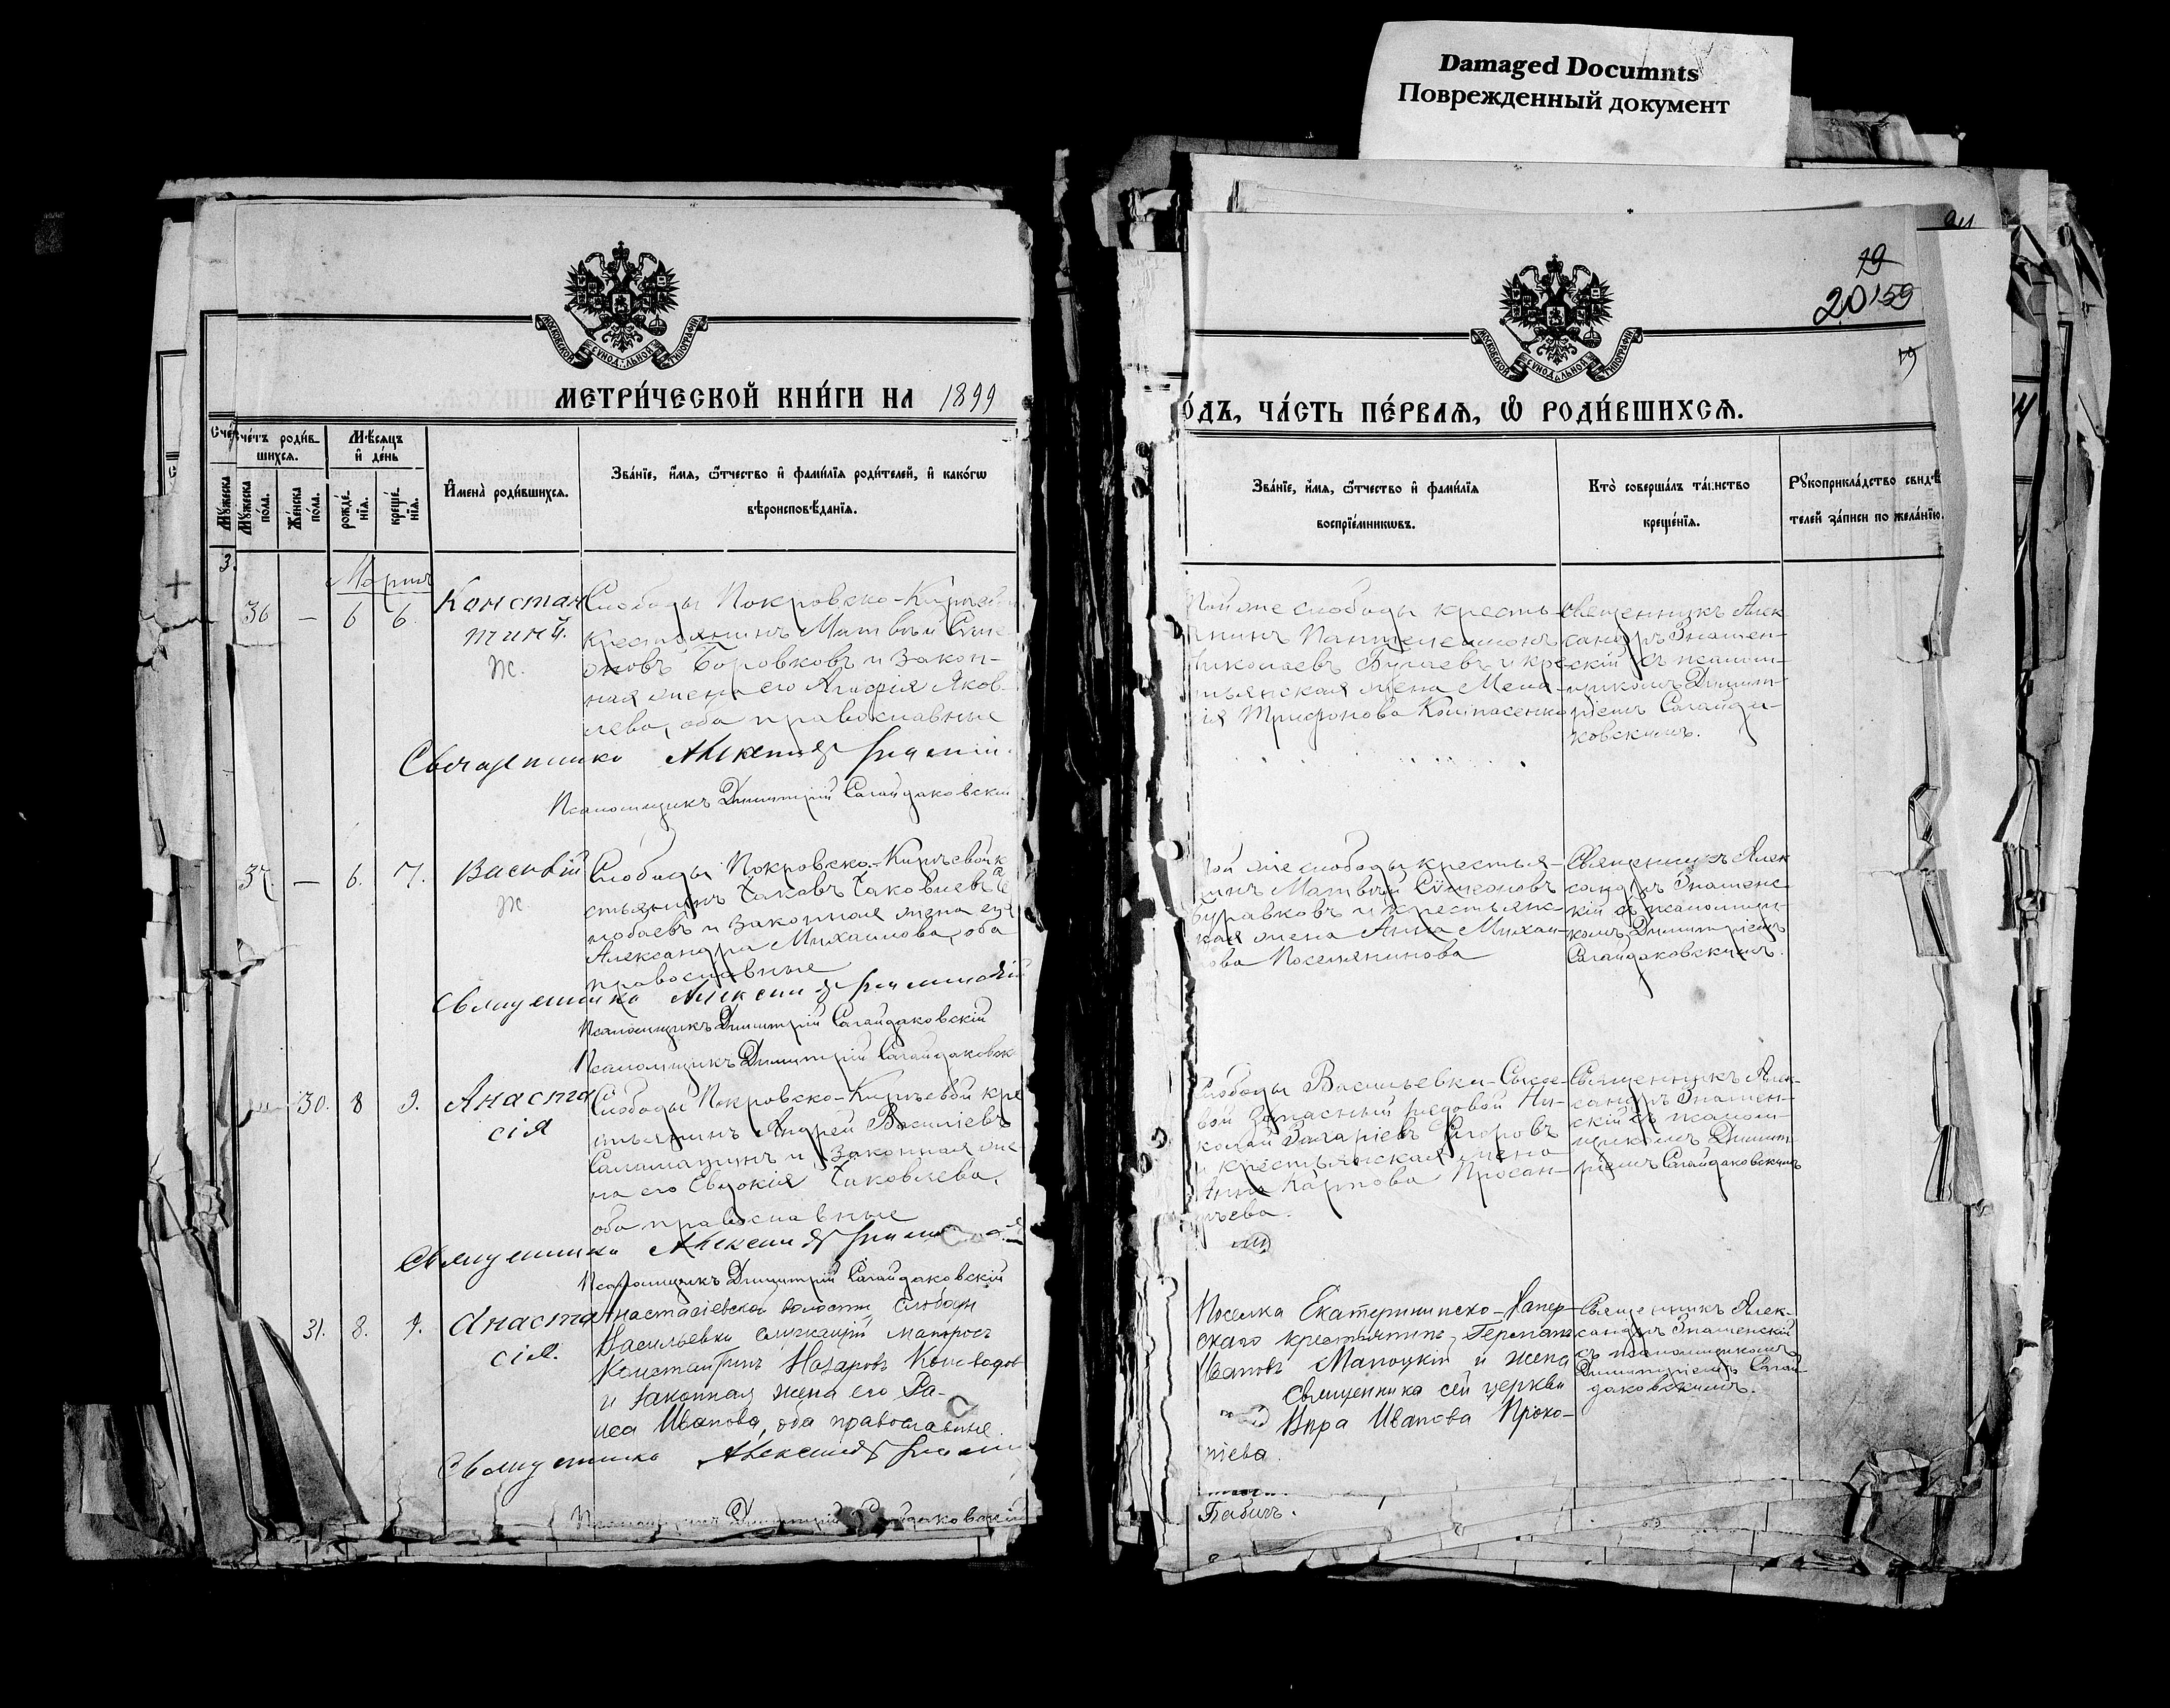 Damaged Documnts
Поврежденный документ
19
20 159
19
МОСКОВСКОЙ СѴНОДАЛЬНОЙ ТИПОГРАФІИ
МОСКОВСКОЙ СѴНОДАЛЬНОЙ ТИПОГРАФІИ
МЕТРИ́ЧЕСКОЙ КНИ́ГИ НА 1899
О́ДЪ, ЧА́СТЬ ПЕ́РВАѦ, Ѡ҆ РОДИ́ВШИХСѦ.
Сче́тъ роди́в-
шихсѧ.
Мѣ́сѧцъ
и҆ де́нь
Мꙋ́жеска
по́ла.
Же́нска
по́ла.
рожде́-
нїѧ.
креще́-
нїѧ.
И҆мена̀ роди́вшихсѧ.
Зва́нїе, и҆́мѧ, ѻ҆́тчество и҆ фами́лїѧ роди́телей, и҆ како́гѡ
вѣроисповѣ́данїѧ.
Зва́нїе, и҆́мѧ, ѻ҆́тчество и҆ фами́лїѧ
воспрїе́мникѡвъ.
Кто̀ соверша́лъ та́инство
креще́нїѧ.
Рꙋкоприкла́дство свидѣ́
телей за́писи по жела́нїю.
Мартъ
36 — 6 6. Констан
тинъ.
Слободы Покровско-Кирѣев
крестьянинъ Матвѣй Симе
оновъ Боровковъ и закон-
ная жена его Агафія Яков-
лева, оба православные
Священникъ Александръ
Псаломщикъ Димитрій Сагайдаковскій
той же слободы кресть-
янинъ Пантелеимонъ
Николаевъ и кре
стьянская жена Мела-
ія Трифонова
Священникъ Алек
сандръ Знамен-
скій съ псалом-
щикомъ Димит-
ріемъ Сагайда-
ковскимъ.
37. — 6. 7. Василій
Слободы Покровско-Кирѣевой к
стьянинъ Іаковъ Іаковлевъ
любаевъ и законная жена его
Александра Михаилова, оба
православные
Священникъ Александръ
Псаломщикъ Димитрій Сагайдаковскій
Псаломщикъ Димитрій Сагайдаковск
той же слободы крестья-
нинъ Матвѣй Симеоновъ
Буравковъ и крестьянс-
кая жена Анна Михаи-
лова Поселянинова
Священникъ Алек
сандръ Знаменс-
кій съ псаломщи-
комъ Димитріемъ
Сагайдаковскимъ.
30. 8 9. Анаста
сія
Слободы Покровско-Кирѣевой кре
стьянинъ Андрей Василіевъ
и законная же
на его Евдокія Іаковлева,
оба православные
Священникъ Александръ
Псаломщикъ Димитрій Сагайдаковскій
Слободы Васильевки-
вой запасный рядовой Ни-
колай Захаріевъ Егоровъ
и крестьянская жена
Анна Карпова
Священникъ Алек-
сандръ Знамен-
скій съ псалом-
щикомъ Димит-
ріемъ Сагайдаковскимъ
31. 8. 9. Анаста
сія.
Анастасіевской волости, слободы
Васильевки служащій матросъ
Константинъ Назаровъ Коноводов
и законная жена его Ра-
иса Иванова, оба православные.
Священникъ Александръ
Псаломщикъ Димитрій Сагайдаковскій
Поселка Екатерининско-Хапер-
скаго крестьянинъ Германъ
Ивановъ Малоцкій и жена
священника сей церкви
Вѣра Иванова Проко-
піева
Бабичъ.
Священникъ Алек-
сандръ Знаменскій
съ псаломщикомъ
Димитріемъ Сагай-
даковскимъ.